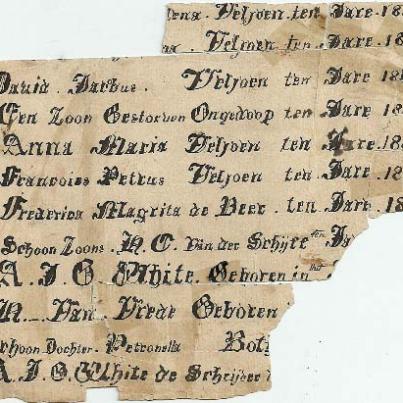 lena. Veljoen. ten Jare. 18
Veljoen ten. Jare. 18
David. Jacbus. Veljoen ten Jare 18
Een Zoon Gestorven Ongedoop ten Jare 18
Anna Maria Veljoen ten Jare. 18
Francoies Petrus Veljoen ten Jare. 18
Frederica Magrita de Beer. ten. Jare. 18
Schoon Zoons. N. C. Van der Schijte ten Ja
A. J. G White. Geboren in het
N. Van Vrede Geboren
choon Dochter. Petronella Bot
A. J. G. White de Schrijver